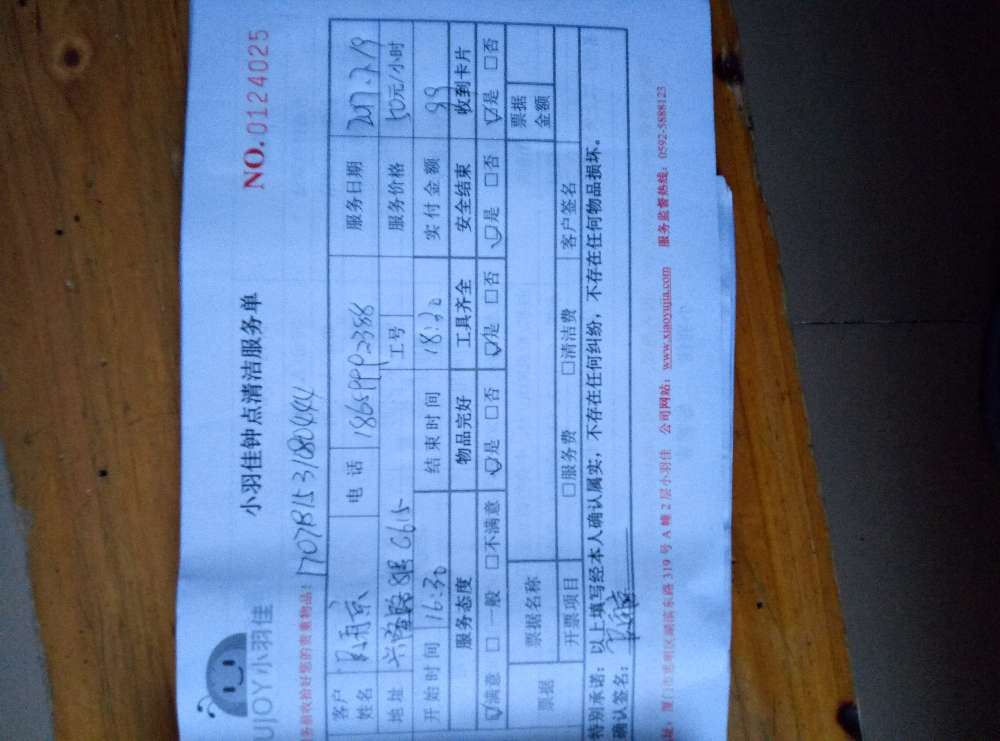 UJOY小羽佳
小羽佳钟点清洁服务单
NO.0124025
务必收拾好您的贵重物品:
1707B1531080444
客户姓名 电话 服务日期 2017.7.19
地址 工号 服务价格 50元/小时
开始时间 16:30 结束时间 18:30 实付金额 99
服务态度 物品完好 工具齐全 安全结束 收到卡片
☑满意 □一般 □不满意 ☑是 □否 ☑是 □否 ☑是 □否 ☑是 □否
票据 票据名称 票据金额
开票项目 □服务费 □清洁费 客户签名
特别承诺:以上填写经本人确认属实,不存在任何纠纷,不存在任何物品损坏。
确认签名:
址:厦门市思明区湖滨东路319号A幢2层小羽佳 公司网站:www.xiaoyujia.com 服务监督热线:0592-5888123